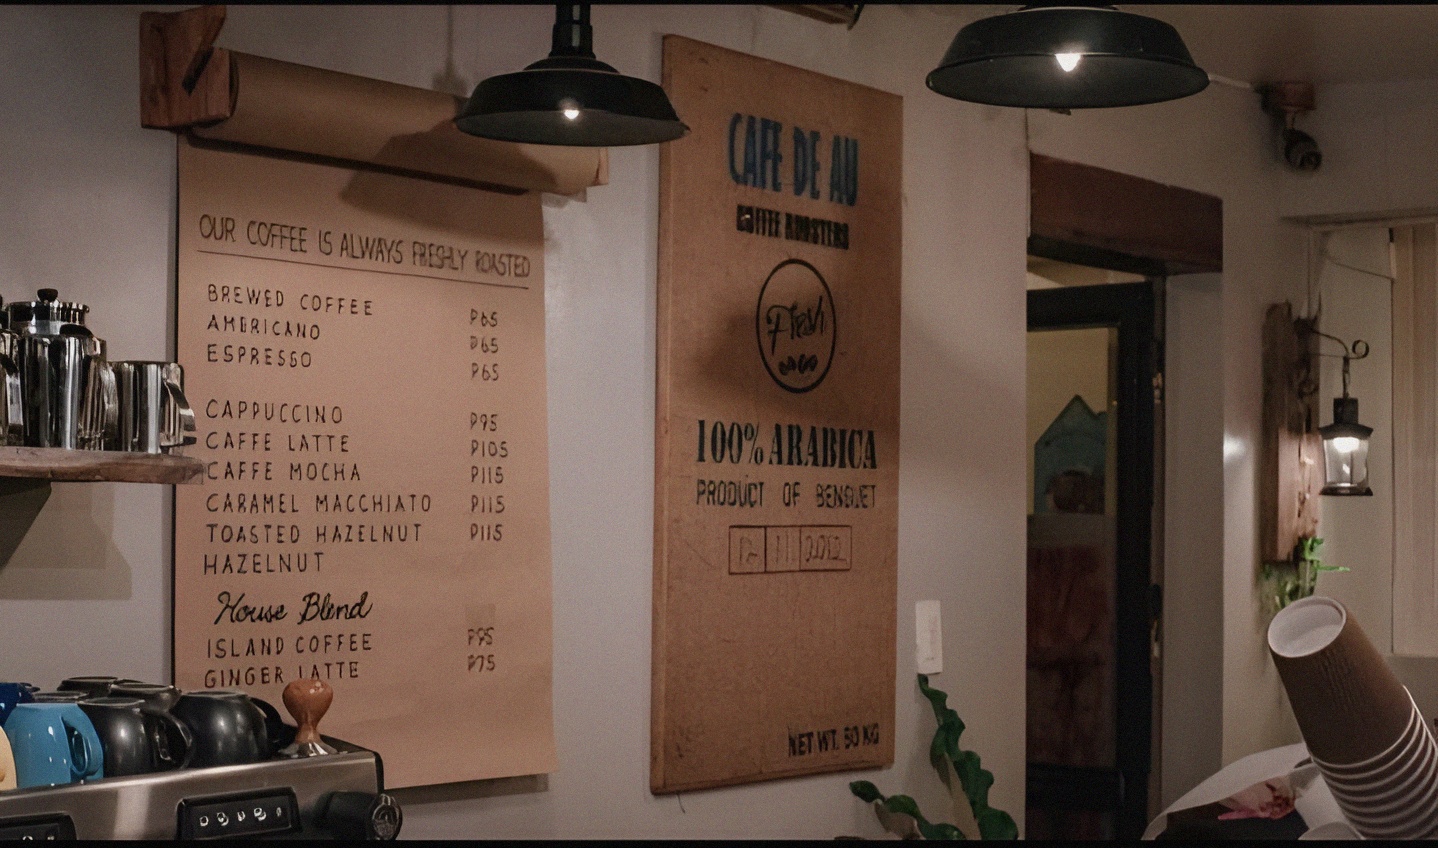 OUR COFFEE IS ALWAYS FRESHLY ROASTED
BREWED COFFEE P65
AMERICANO P65
ESPRESSO P65
CAPPUCCINO P95
CAFFE LATTE P105
CAFFE MOCHA P115
CARAMEL MACCHIATO P115
TOASTED HAZELNUT P115
HAZELNUT
House Blend
ISLAND COFFEE P95
GINGER LATTE P75
CAFE DE AU
COFFEE ROASTERS
100% ARABICA
PRODUCT OF BENGUET
12 11 2012
NET WT. 50 KG